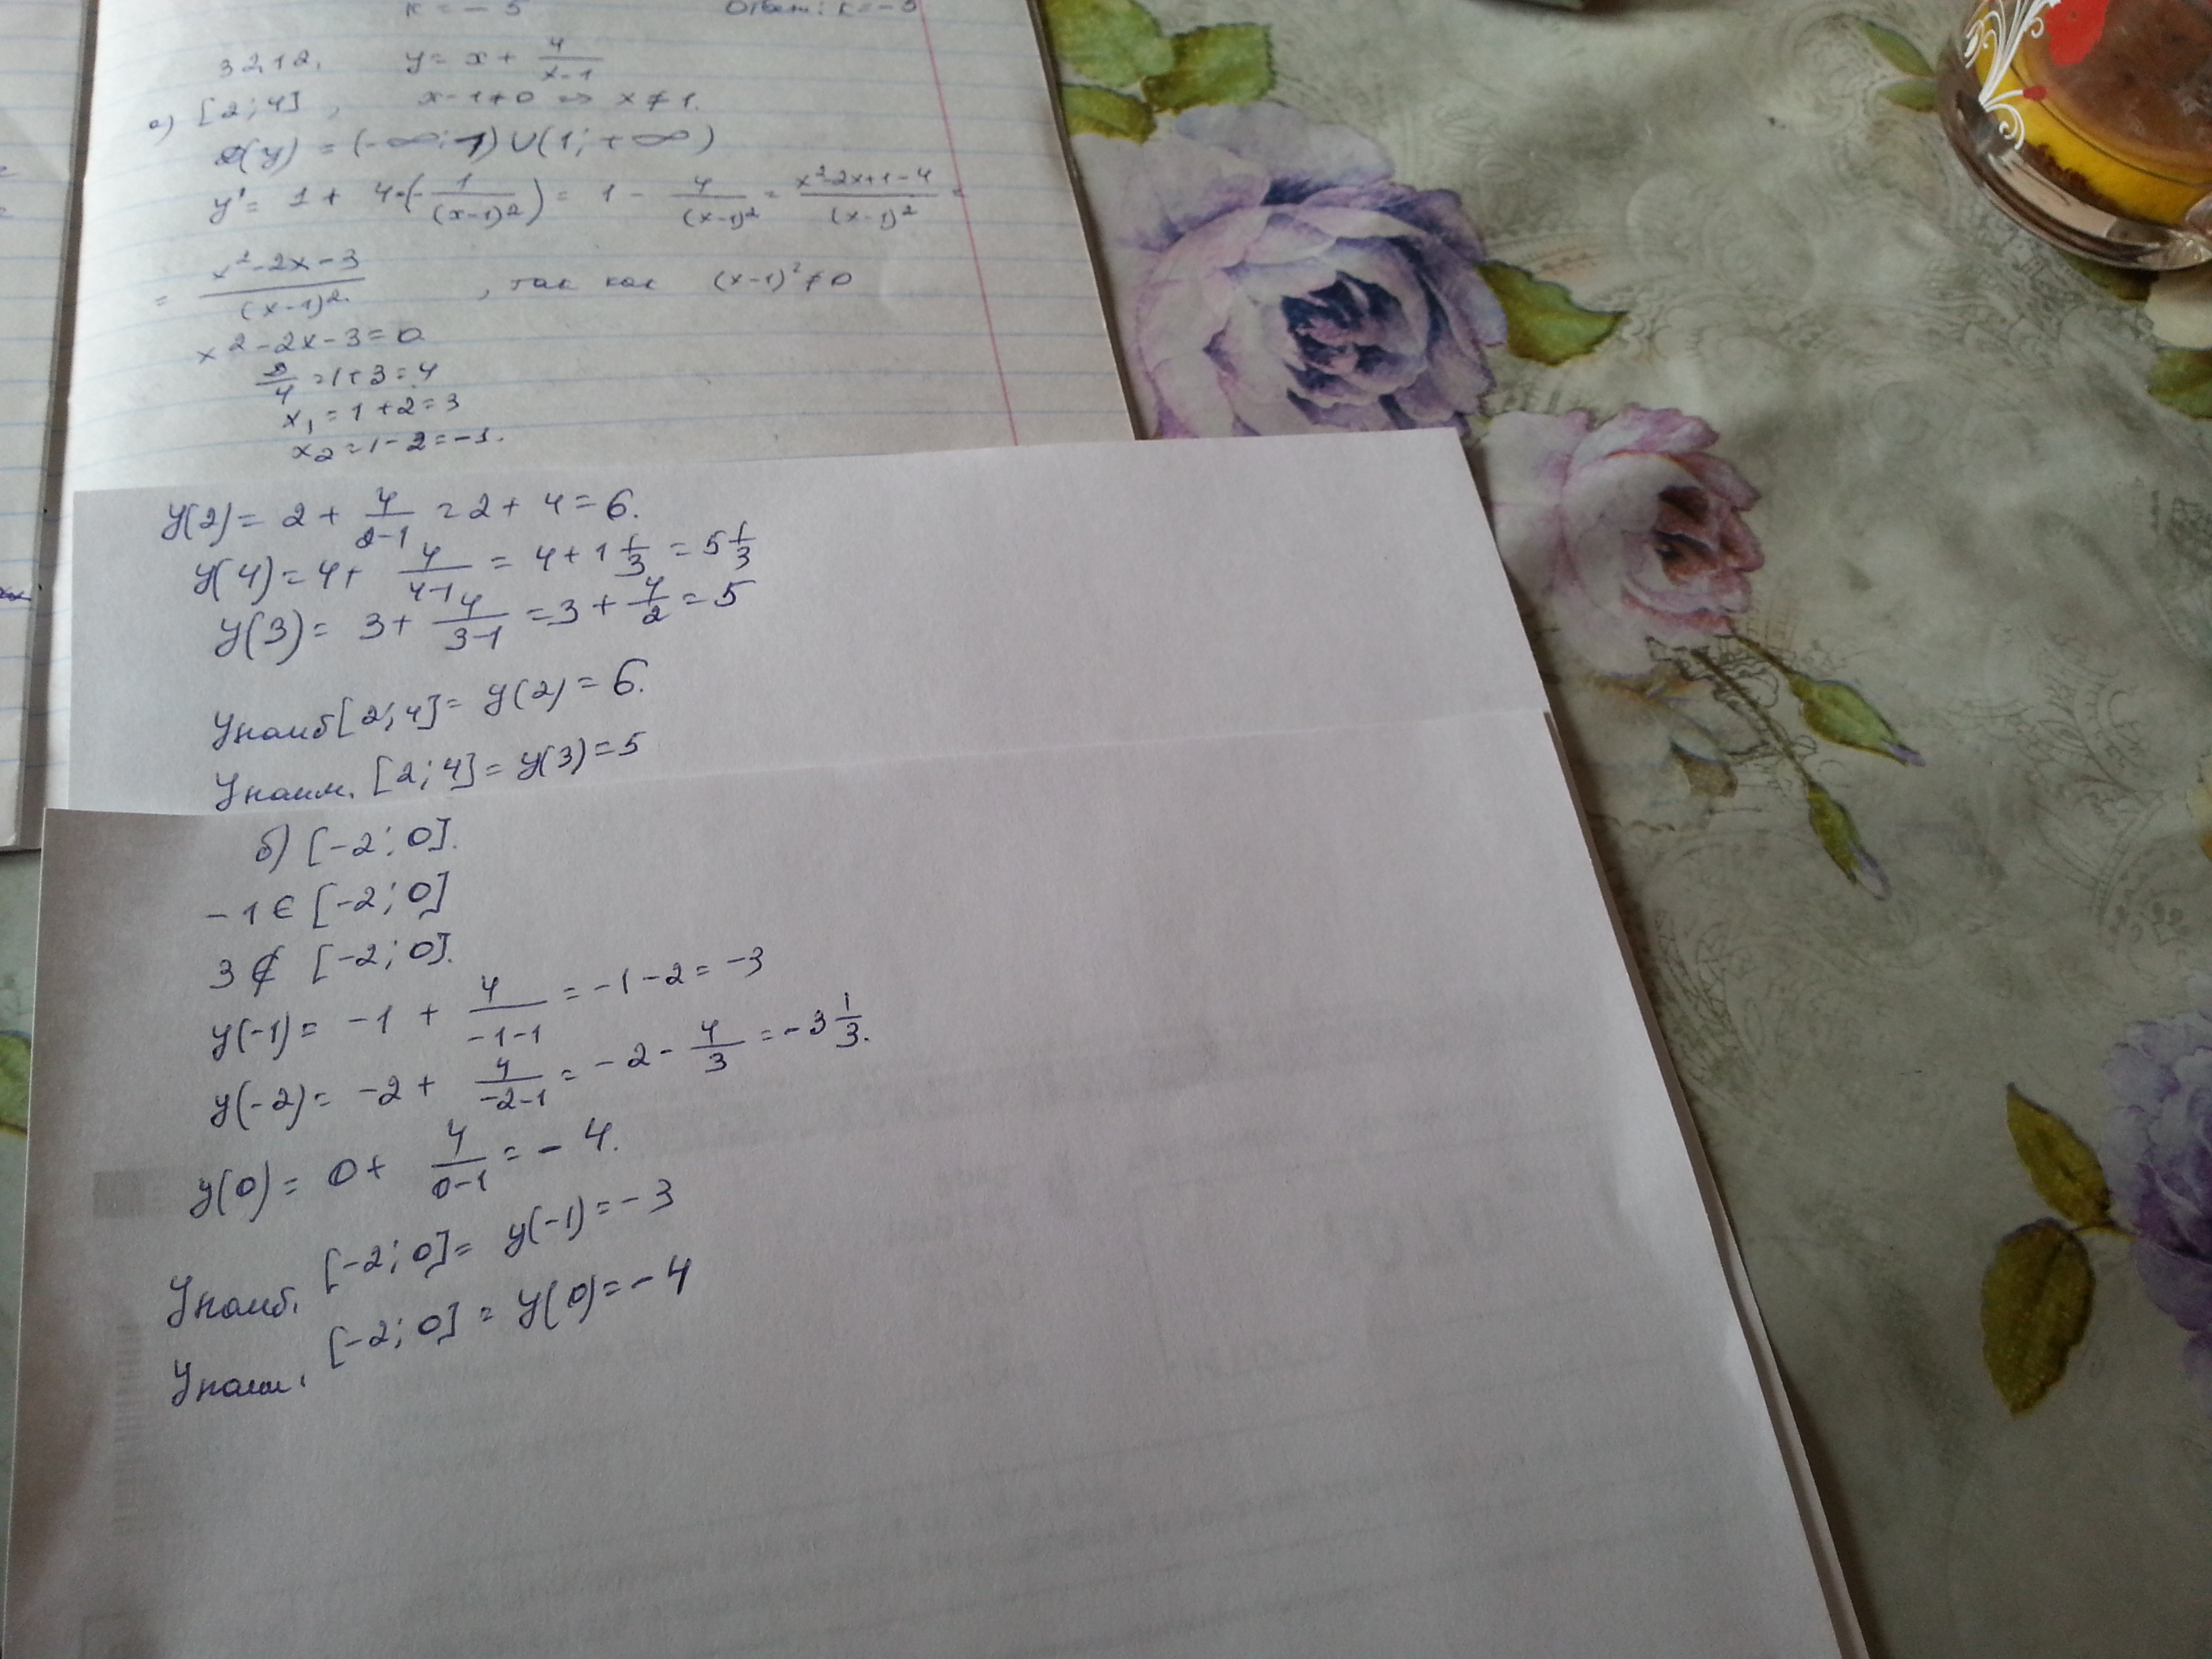 к = - 5 Ответ: к = - 5
3212. y = x + 4/(x-1)
а) [2; 4], x-1≠0 => x≠1.
D(y) = (-∞; 1) ∪ (1; +∞)
y' = 1 + 4·(-1/(x-1)²) = 1 - 4/(x-1)² = (x²-2x+1-4)/(x-1)² =
= (x²-2x-3)/(x-1)², так как (x-1)²≠0
x²-2x-3=0
D/4 = 1+3=4
x₁ = 1+2=3
x₂ = 1-2=-1.
y(2) = 2 + 4/(2-1) = 2 + 4 = 6.
y(4) = 4 + 4/(4-1) = 4 + 1 1/3 = 5 1/3
y(3) = 3 + 4/(3-1) = 3 + 4/2 = 5
Yнаиб [2; 4] = y(2) = 6.
Yнаим. [2; 4] = y(3) = 5
б) [-2; 0].
-1 ∈ [-2; 0]
3 ∉ [-2; 0].
y(-1) = -1 + 4/(-1-1) = -1-2 = -3
y(-2) = -2 + 4/(-2-1) = -2 - 4/3 = -3 1/3.
y(0) = 0 + 4/(0-1) = -4.
Yнаиб. [-2; 0] = y(-1) = -3
Yнаим. [-2; 0] = y(0) = -4